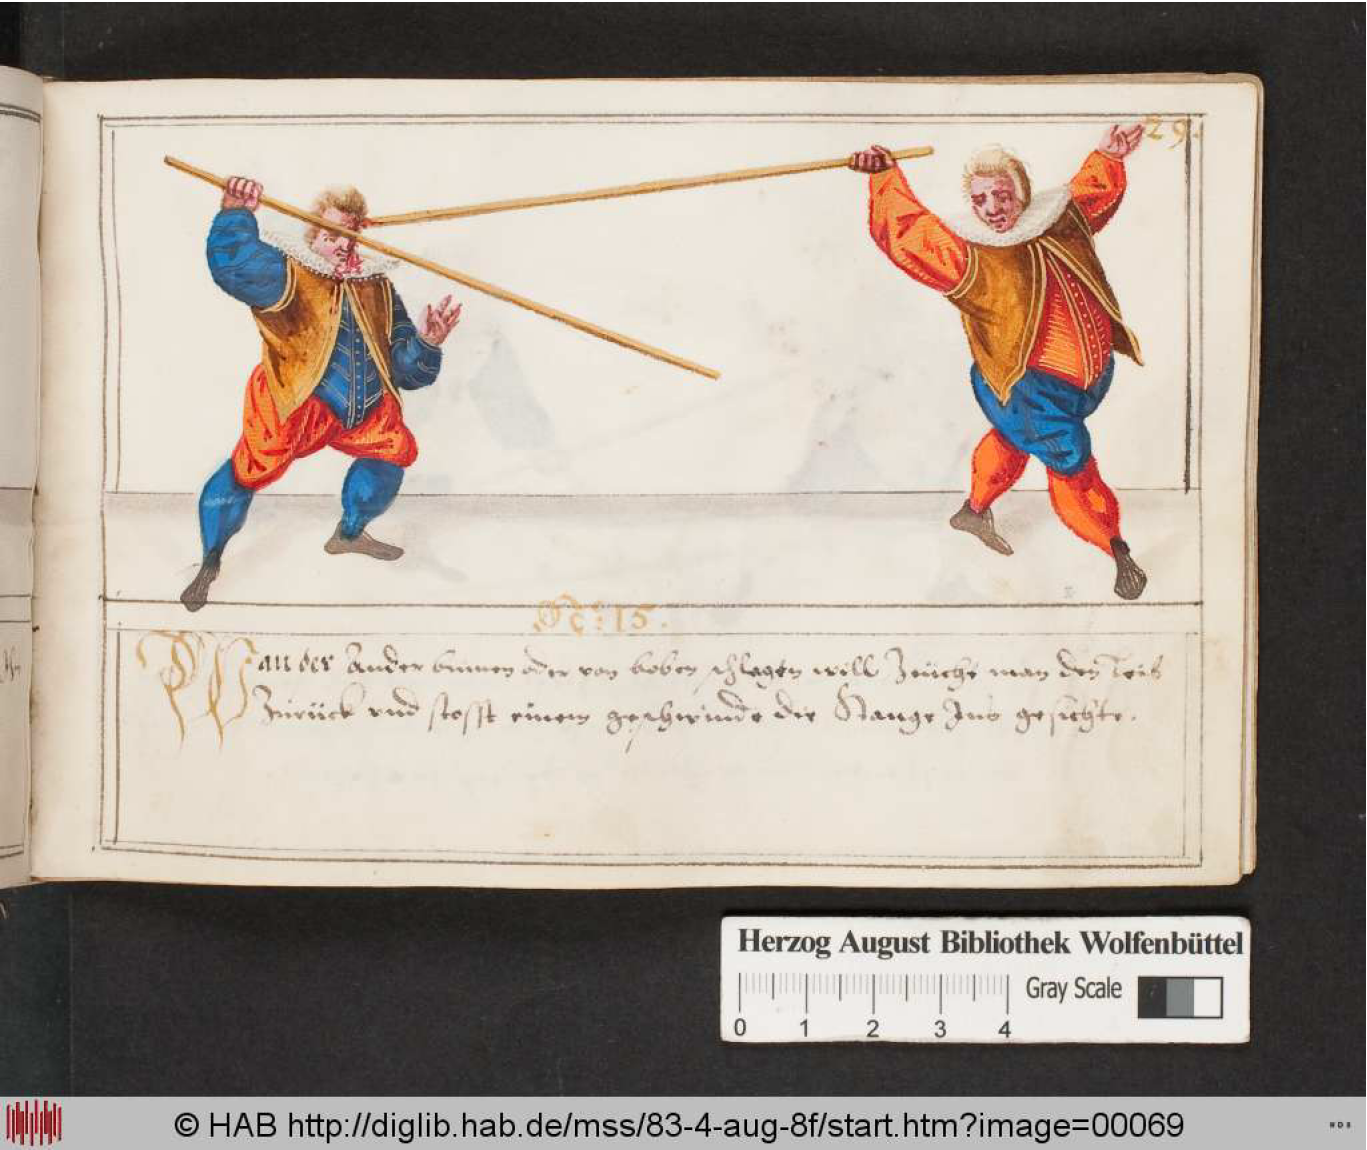 29.
No: 15.
Wan der Ander binnen oder von boben schlagen will Zeücht man den Leib
Zurück vnd stosst einem geschwinde die Stange Ins gesichte.
Herzog August Bibliothek Wolfenbüttel
Gray Scale
0 1 2 3 4
© HAB http://diglib.hab.de/mss/83-4-aug-8f/start.htm?image=00069